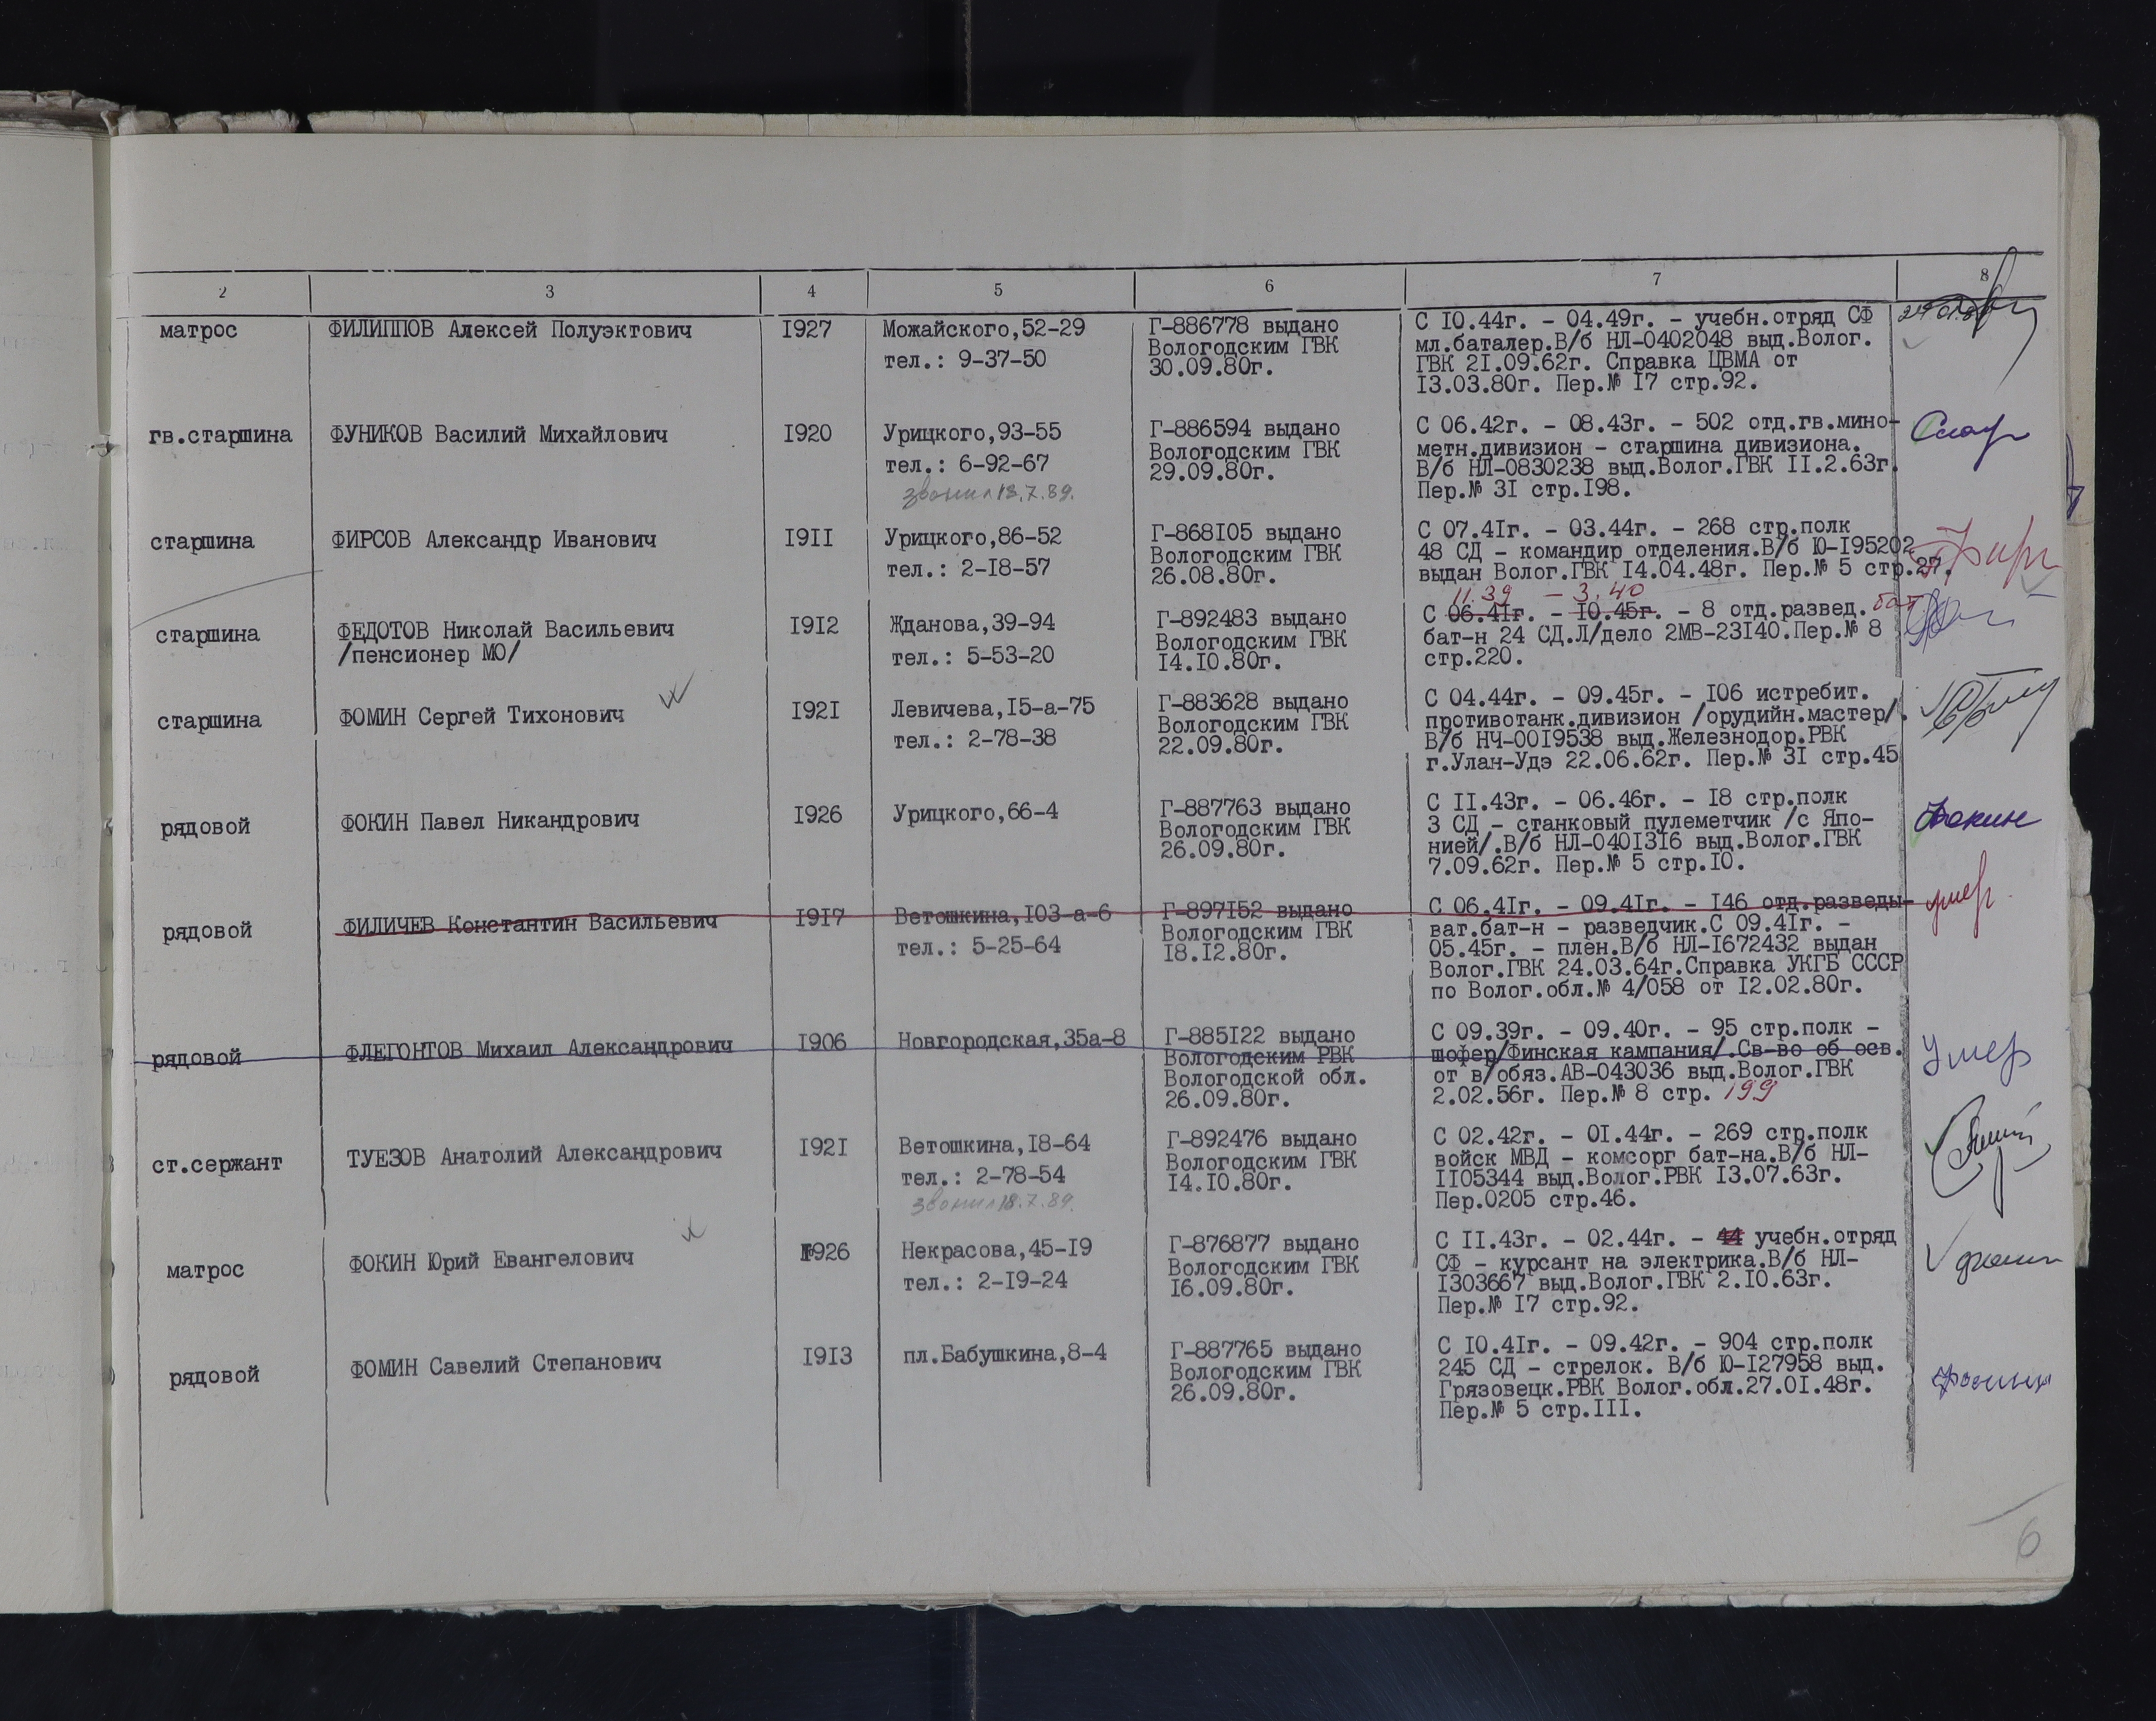 2 3 4 5 6 7 8
матрос ФИЛИППОВ Алексей Полуэктович 1927 Можайского,52-29 Г-886778 выдано С 10.44г. - 04.49г. - учебн.отряд СФ
Вологодским ГВК мл.баталер.В/б НЛ-0402048 выд.Волог.
тел.: 9-37-50 30.09.80г. ГВК 21.09.62г. Справка ЦВМА от
13.03.80г. Пер.№ 17 стр.92.
гв.старшина ФУНИКОВ Василий Михайлович 1920 Урицкого,93-55 Г-886594 выдано С 06.42г. - 08.43г. - 502 отд.гв.мино-
Вологодским ГВК метн.дивизион - старшина дивизиона.
тел.: 6-92-67 29.09.80г. В/б НЛ-0830238 выд.Волог.ГВК 11.2.63г.
звонил 18.7.89. Пер.№ 31 стр.198.
старшина ФИРСОВ Александр Иванович 1911 Урицкого,86-52 Г-868105 выдано С 07.41г. - 03.44г. - 268 стр.полк
Вологодским ГВК 48 СД - командир отделения.В/б Ю-195202
тел.: 2-18-57 26.08.80г. выдан Волог.ГВК 14.04.48г. Пер.№ 5 стр.27.
11.39 - 3.40
старшина ФЕДОТОВ Николай Васильевич 1912 Жданова,39-94 Г-892483 выдано С 06.41г. - 10.45г. - 8 отд.развед. бат
/пенсионер МО/ Вологодским ГВК бат-н 24 СД.Л/дело 2МВ-23140.Пер.№ 8
тел.: 5-53-20 14.10.80г. стр.220.
старшина ФОМИН Сергей Тихонович 1921 Левичева,15-а-75 Г-883628 выдано С 04.44г. - 09.45г. - 106 истребит.
Вологодским ГВК противотанк.дивизион /орудийн.мастер/.
тел.: 2-78-38 22.09.80г. В/б НЧ-0019538 выд.Железнодор.РВК
г.Улан-Удэ 22.06.62г. Пер.№ 31 стр.45
рядовой ФОКИН Павел Никандрович 1926 Урицкого,66-4 Г-887763 выдано С 11.43г. - 06.46г. - 18 стр.полк Фокин
Вологодским ГВК 3 СД - станковый пулеметчик /с Япо-
26.09.80г. нией/.В/б НЛ-0401316 выд.Волог.ГВК
7.09.62г. Пер.№ 5 стр.10.
рядовой ФИЛИЧЕВ Константин Васильевич 1917 Ветошкина,103-а-6 Г-897152 выдано С 06.41г. - 09.41г. - 146 отд.разведы- умер
Вологодским ГВК ват.бат-н - разведчик.С 09.41г. -
тел.: 5-25-64 18.12.80г. 05.45г. - плен.В/б НЛ-1672432 выдан
Волог.ГВК 24.03.64г.Справка УКГБ СССР
по Волог.обл.№ 4/058 от 12.02.80г.
рядовой ФЛЕГОНТОВ Михаил Александрович 1906 Новгородская,35а-8 Г-885122 выдано С 09.39г. - 09.40г. - 95 стр.полк - Умер
Вологодским РВК шофер/Финская кампания/.Св-во об осв.
Вологодской обл. от в/обяз.АВ-043036 выд.Волог.ГВК
26.09.80г. 2.02.56г. Пер.№ 8 стр. 199
ст.сержант ТУЕЗОВ Анатолий Александрович 1921 Ветошкина,18-64 Г-892476 выдано С 02.42г. - 01.44г. - 269 стр.полк
Вологодским ГВК войск МВД - комсорг бат-на.В/б НЛ-
тел.: 2-78-54 14.10.80г. 1105344 выд.Волог.РВК 13.07.63г.
звонил 18.7.89. Пер.0205 стр.46.
матрос ФОКИН Юрий Евангелович 1926 Некрасова,45-19 Г-876877 выдано С 11.43г. - 02.44г. - 44 учебн.отряд
Вологодским ГВК СФ - курсант на электрика.В/б НЛ-
тел.: 2-19-24 16.09.80г. 1303667 выд.Волог.ГВК 2.10.63г.
Пер.№ 17 стр.92.
рядовой ФОМИН Савелий Степанович 1913 пл.Бабушкина,8-4 Г-887765 выдано С 10.41г. - 09.42г. - 904 стр.полк
Вологодским ГВК 245 СД - стрелок. В/б Ю-127958 выд.
26.09.80г. Грязовецк.РВК Волог.обл.27.01.48г.
Пер.№ 5 стр.111.
6